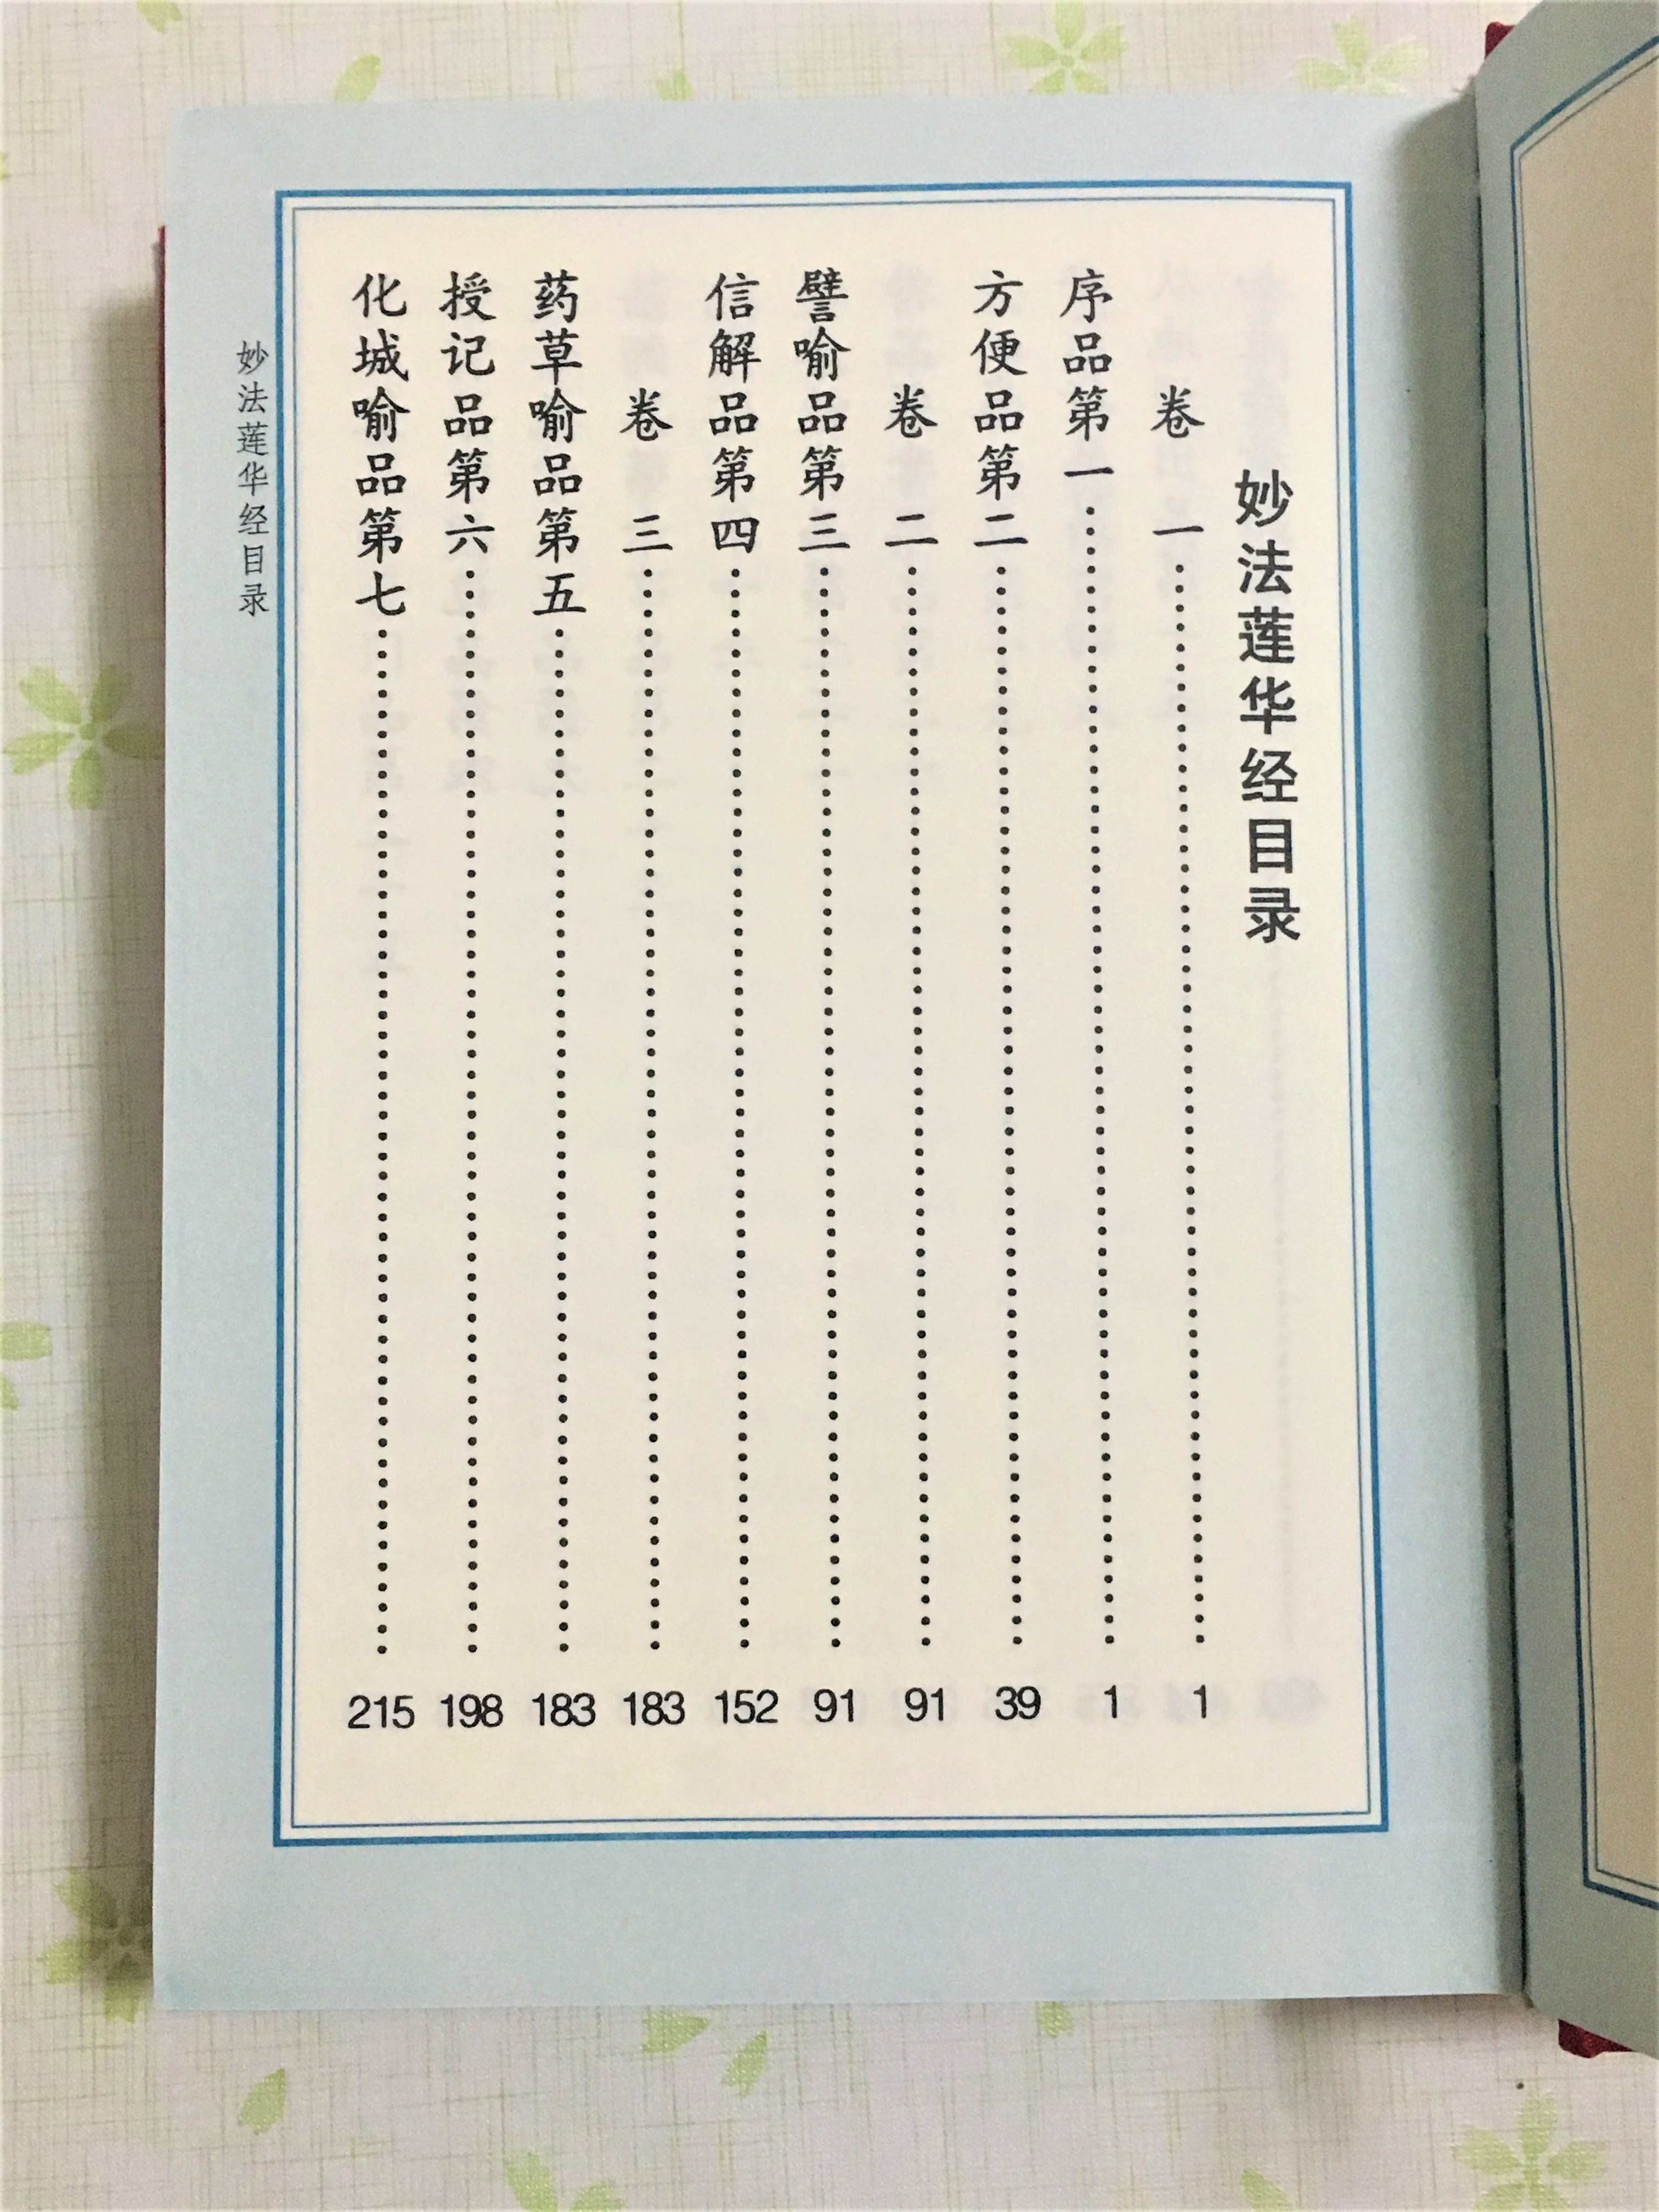 妙法莲华经目录
卷一…………1
序品第一…………1
方便品第二…………39
卷二…………91
譬喻品第三…………91
信解品第四…………152
卷三…………183
药草喻品第五…………183
授记品第六…………198
化城喻品第七…………215
妙法莲华经目录